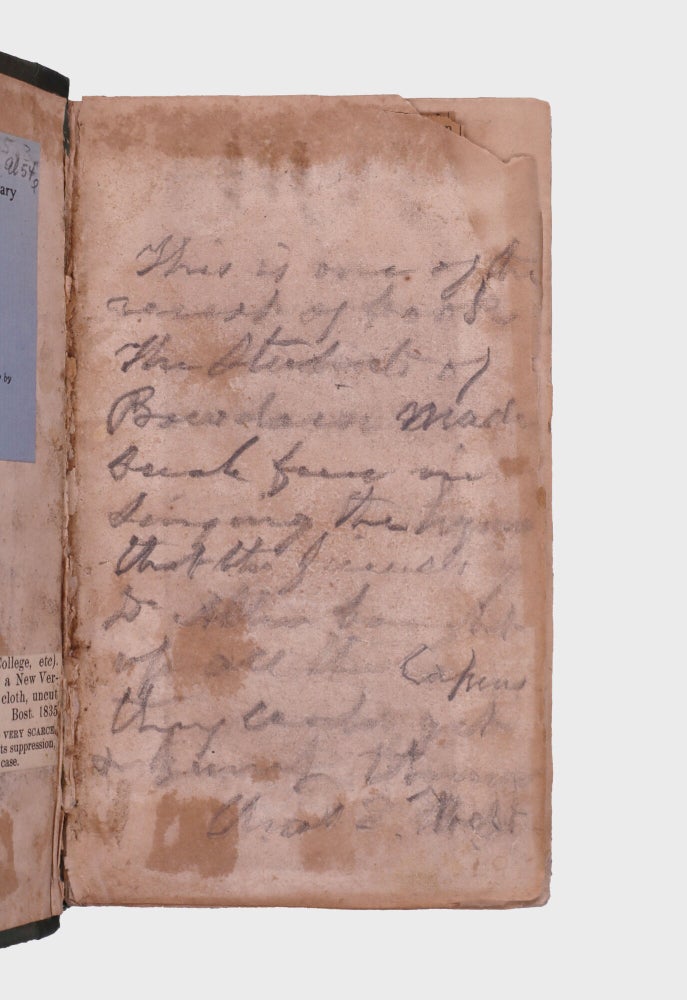 al 54
ary
by
College, etc).
a New Ver-
cloth, uncut
Bost. 1835
VERY SCARCE,
ts suppression,
case.
This is one of the
of book
The Students of
Bowdoin Made
such fun in
Singing the hymns
that the friends of
Dr Allen bought
up all the Copies
they could get
& burned them
Chas E.